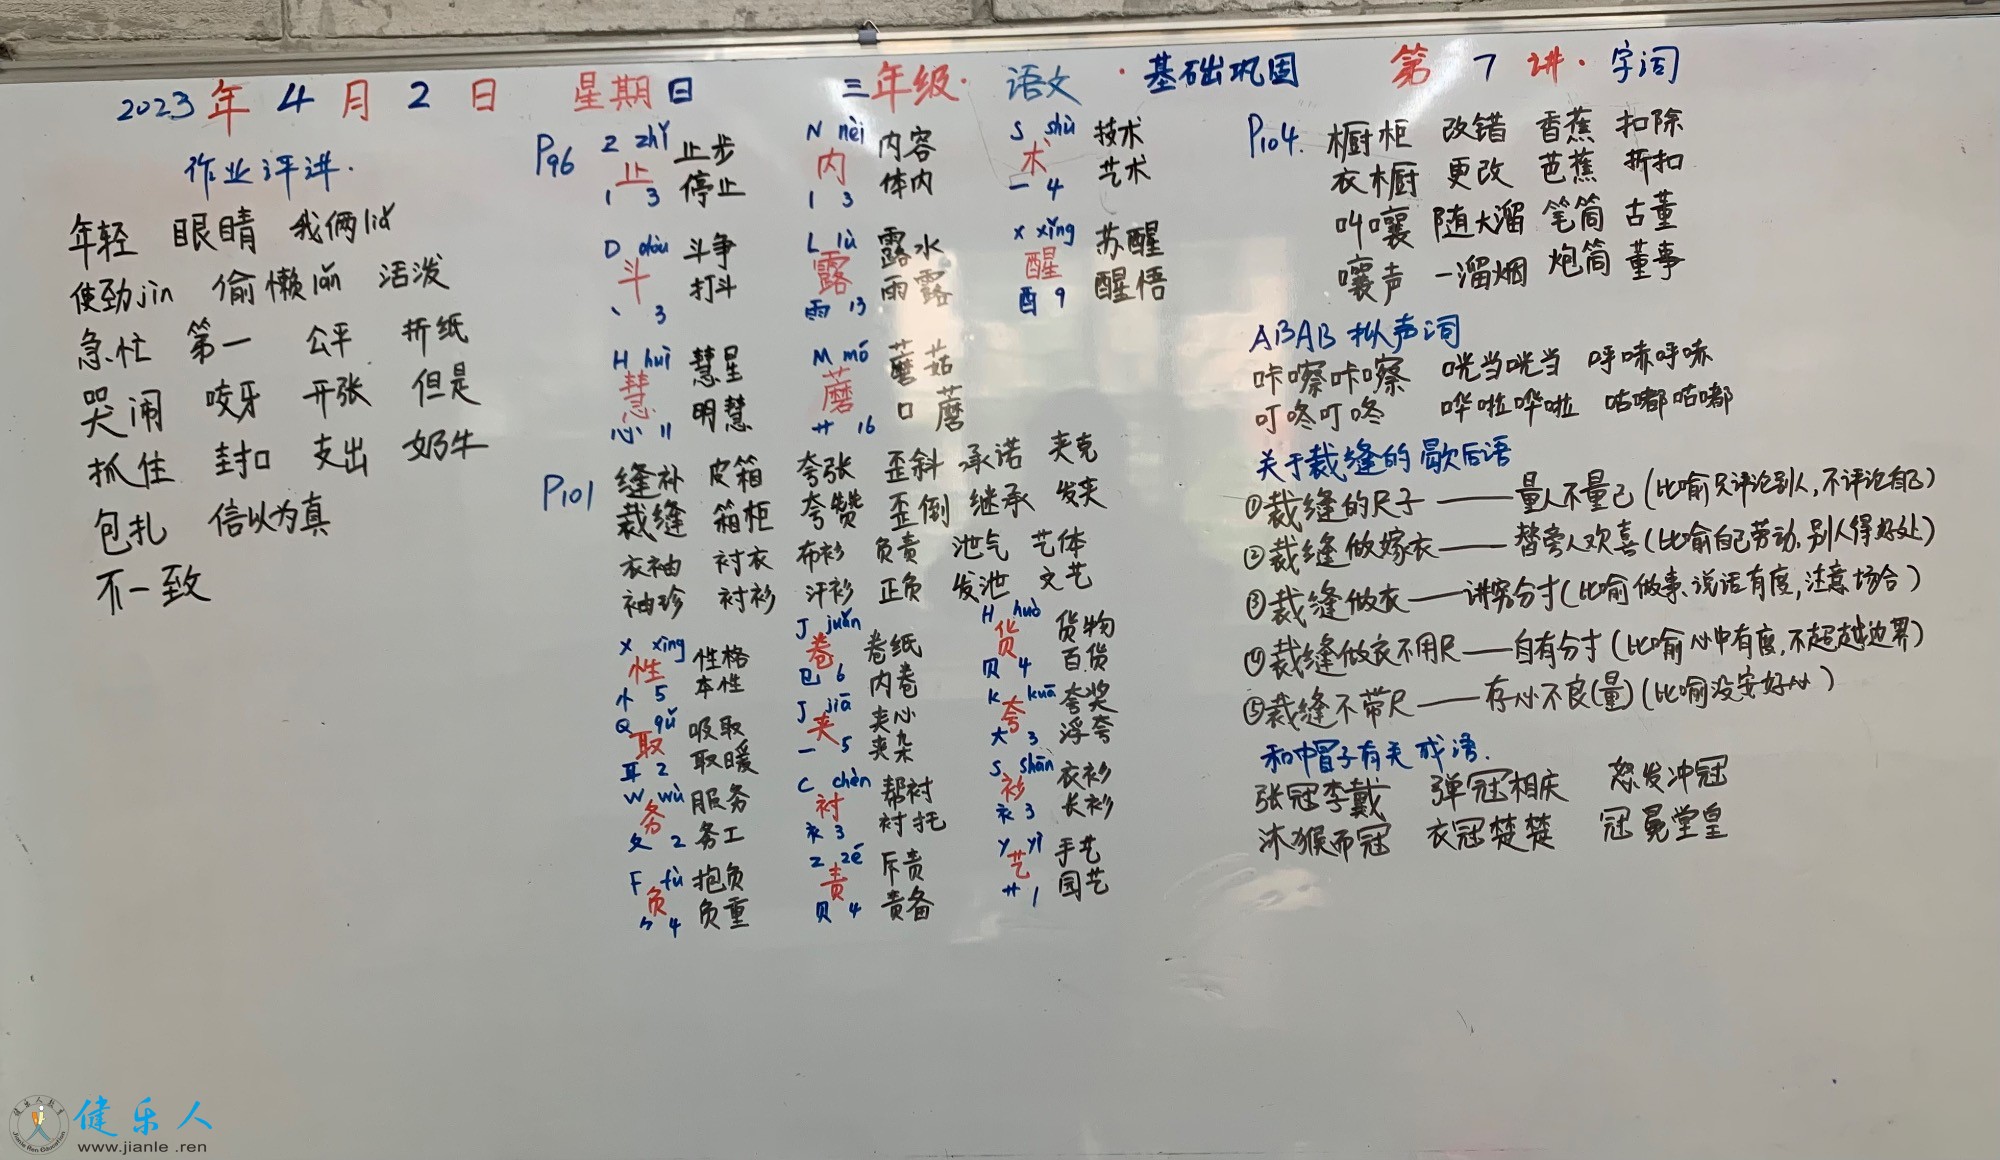 2023年4月2日 星期日 三年级·语文·基础巩固 第7讲·字词
作业评讲.
年轻 眼睛 我俩liǎ
使劲jìn 偷懒lǎn 活泼
急忙 第一 公平 折纸
哭闹 咬牙 开张 但是
抓住 封口 支出 奶牛
包扎 信以为真
不一致
P96 Z zhǐ 止步 N nèi 内容 S shù 技术
止 停止 内 体内 术 艺术
1 3 1 3 一 4
D dòu 斗争 L lù 露水 X xǐng 苏醒
斗 打斗 露 雨露 醒 醒悟
丶 3 雨 13 酉 9
H huì 慧星 M mó 蘑菇
慧 明慧 蘑 口蘑
心 11 艹 16
P101 缝补 皮箱 夸张 歪斜 承诺 夹克
裁缝 箱柜 夸赞 歪倒 继承 发夹
衣袖 衬衣 布衫 负责 泄气 艺体
袖珍 衬衫 汗衫 正负 发泄 文艺
X xìng 性格 J juǎn 卷纸 H huò 货物
性 本性 卷 内卷 货 百货
忄 5 㔾 6 贝 4
Q qǔ 吸取 J jiā 夹心 K kuā 夸奖
取 取暖 夹 夹杂 夸 浮夸
耳 2 一 5 大 3
W wù 服务 C chèn 帮衬 S shān 衣衫
务 务工 衬 衬托 衫 长衫
夂 2 衤 3 衤 3
F fù 抱负 Z zé 斥责 Y yì 手艺
负 负重 责 责备 艺 园艺
⺈ 4 贝 4 艹 1
P104. 橱柜 改错 香蕉 扣除
衣橱 更改 芭蕉 折扣
叫嚷 随大溜 笔筒 古董
嚷声 一溜烟 炮筒 董事
ABAB 拟声词
咔嚓咔嚓 咣当咣当 呼哧呼哧
叮咚叮咚 哗啦哗啦 咕嘟咕嘟
关于裁缝的歇后语
①裁缝的尺子——量人不量己(比喻只评论别人,不评论自己)
②裁缝做嫁衣——替旁人欢喜(比喻自己劳动,别人得好处)
③裁缝做衣——讲究分寸(比喻做事、说话有度,注意场合)
④裁缝做衣不用尺——自有分寸(比喻心中有度,不超越边界)
⑤裁缝不带尺——存心不良(量)(比喻没安好心)
和帽子有关成语.
张冠李戴 弹冠相庆 怒发冲冠
沐猴而冠 衣冠楚楚 冠冕堂皇
健乐人
www.jianle.ren